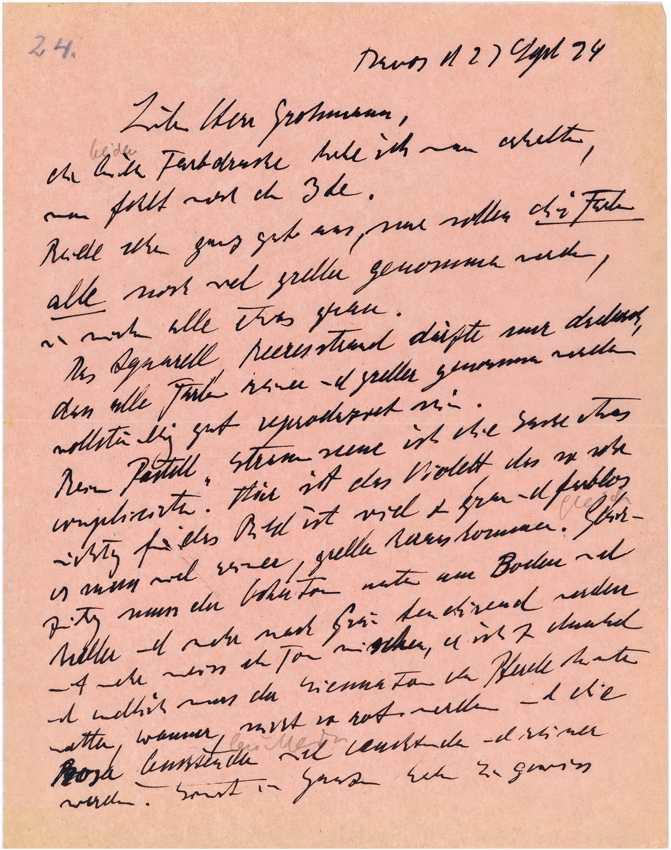 24.
Davos d 27 Sept 24
Lieber Herr Grohmann,
beiden
die beiden Farbdrucke habe ich nun erhalten,
nun fehlt noch der 3te.
Beide sehen ganz gut aus, nur sollen die Farben
alle noch viel greller genommen werden,
alle etwas grau.
Das Aquarell Meeresstrand dürfte nur dadurch,
dass alle Farben reiner und greller genommen werden
vollständig gut reproduziert sein.
Beim Pastell „Strassenscene ist die Sache etwas
complicierter. Hier ist das Violett das so sehr
wichtig für das Bild ist viel z grau und farblos
es muss viel reiner, greller herauskommen. Gleich-
zeitig muss der Ockerton unten am Boden viel
heller und mehr nach Grün tendierend werden
der Ton er ist z dunkel
und endlich muss der Siennaton der Pferde hinten
matter, wärmer, nicht so rot werden und die
Rosa leuchtender und reiner
werden. Sonst im Ganzen